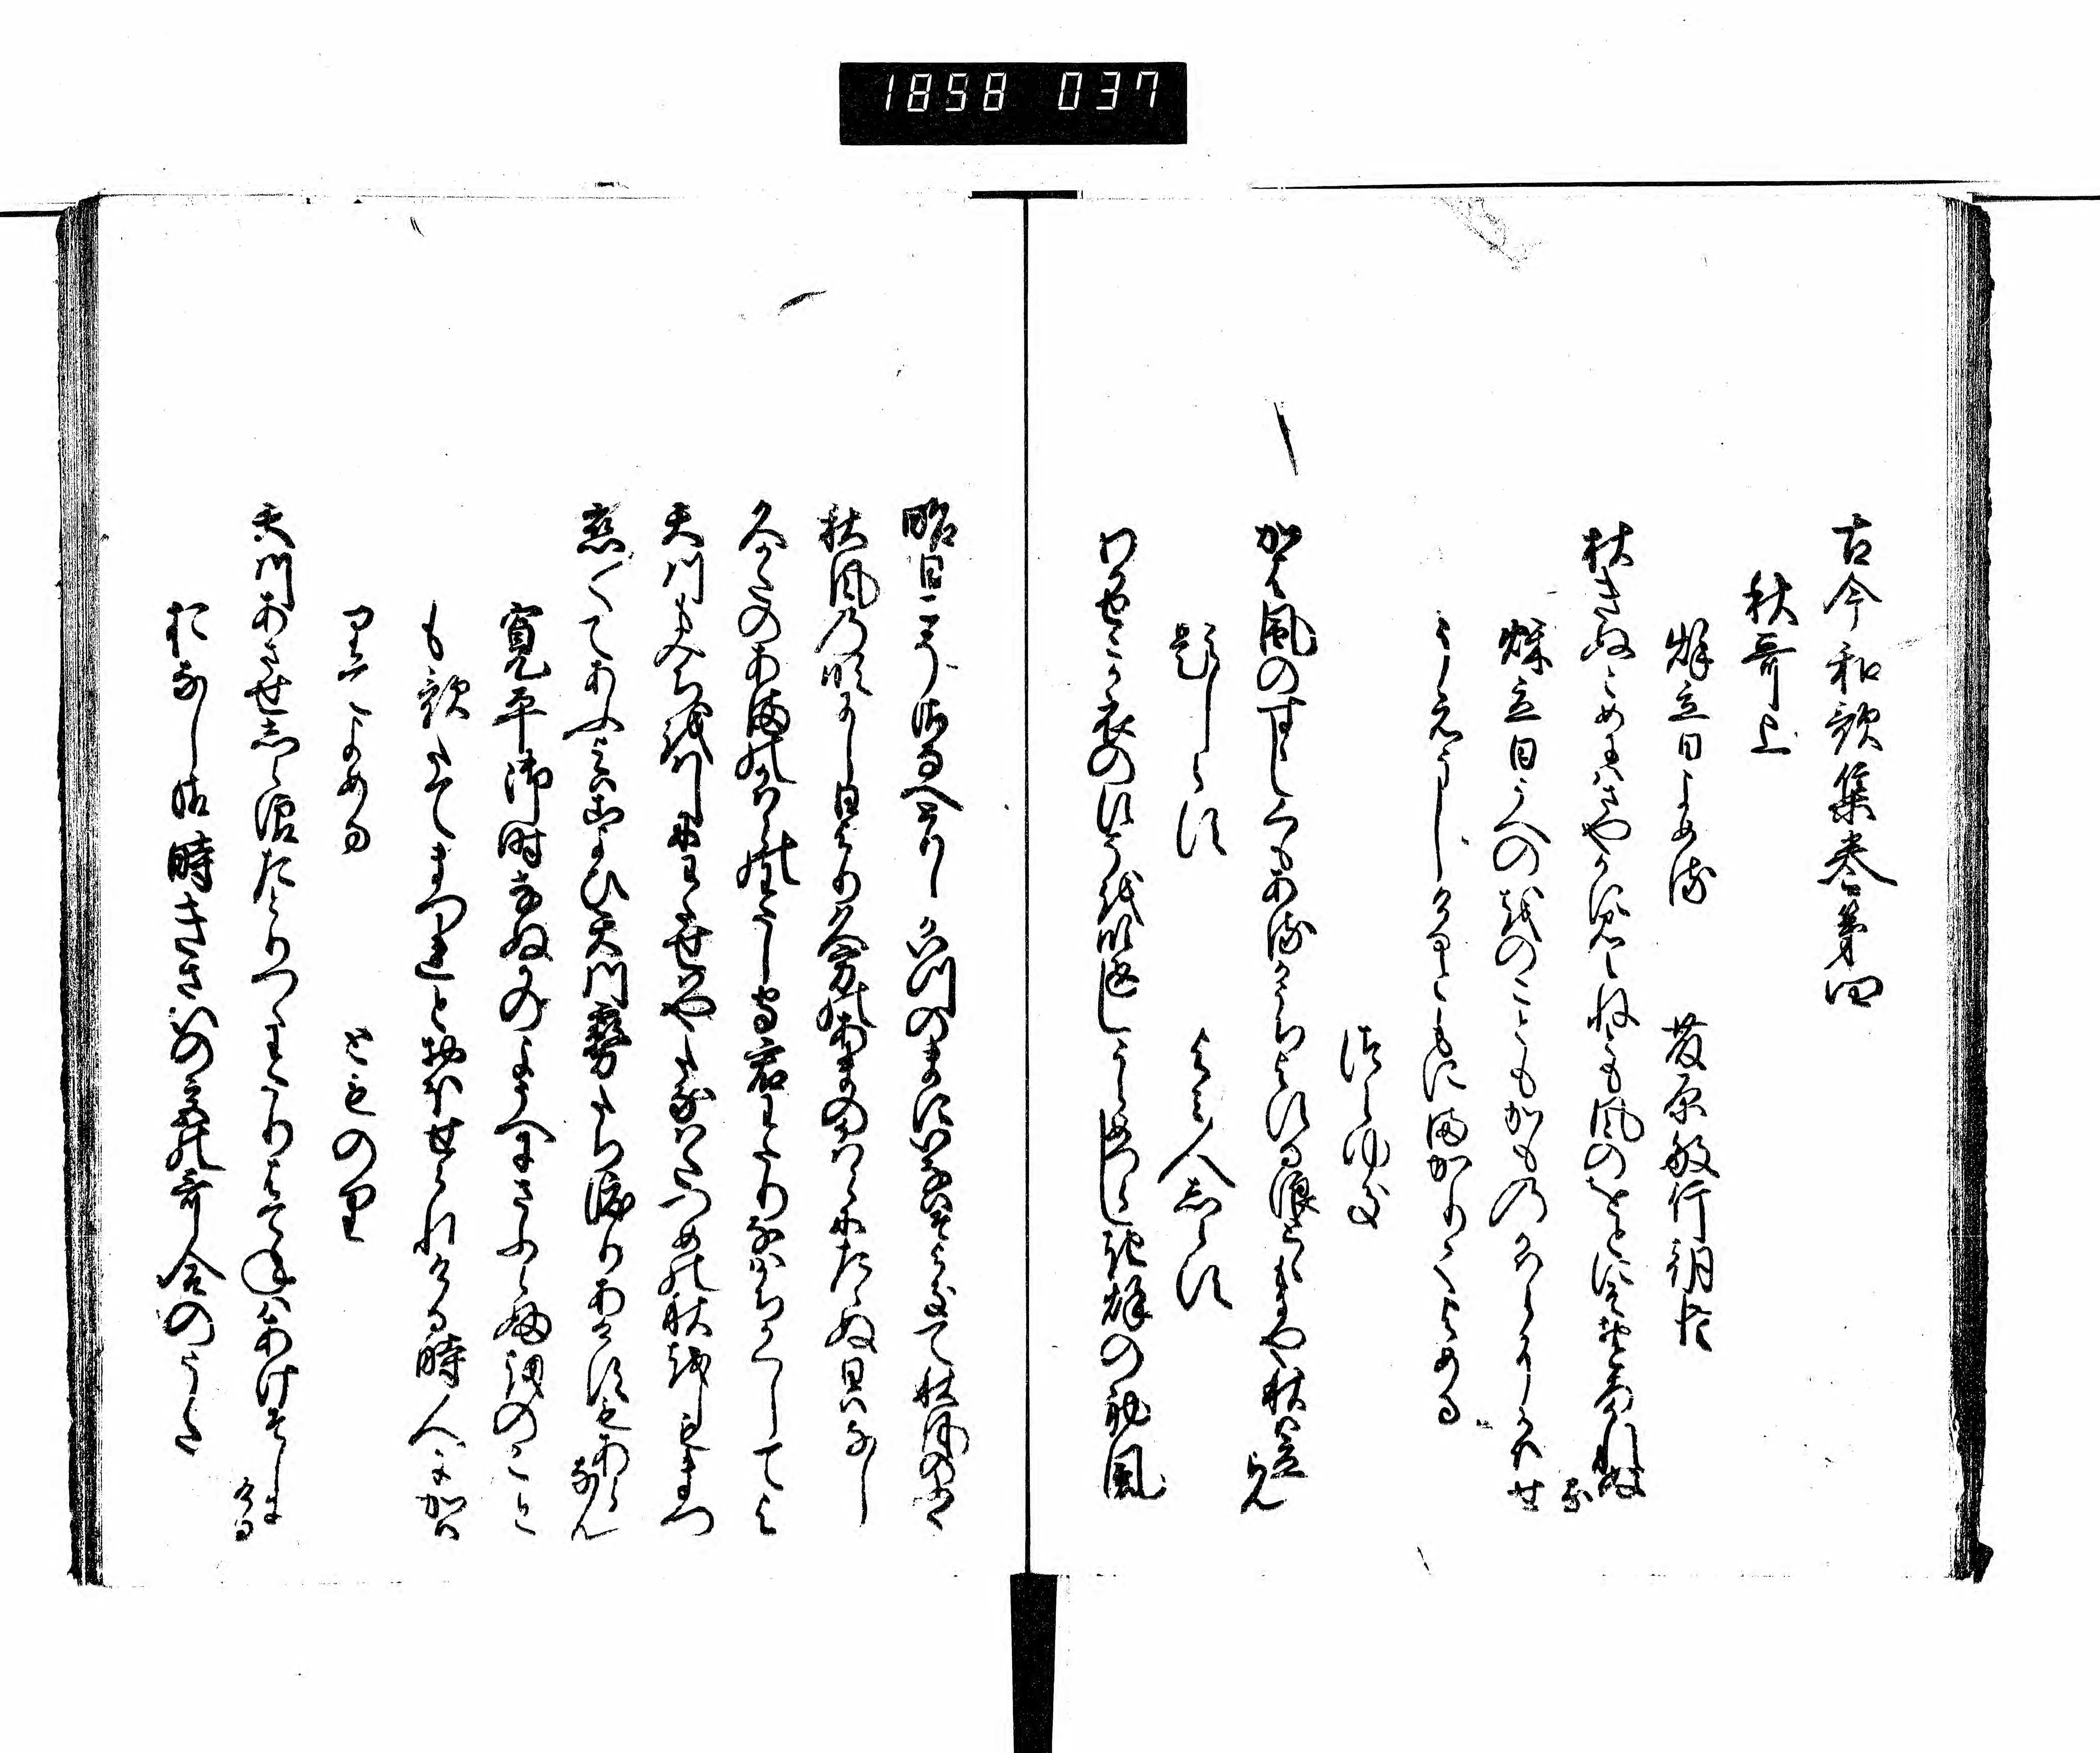 1858 037
古今和歌集巻第四
秋哥上
秌立日よめる
藤原敏行朝臣
秋きぬとめにはさやかに見えねとも風のをとにそおとろかれぬ
る
秌立日うへのをのこともかものかはらにかはせ
うえうしけるともにまかりてよめる
つらゆき
かは風のすゝしくもあるかうちよする浪とゝもにや秋は立
らん
題しらす
よみ人しらす
わかせこか衣のすそを吹返しうらめつらしき秌の初風
昨日こそさなへとりしかいつのまにいなはそよきて秋風のふく
秋風の吹にし日より久方のあまのかはらにたゝぬ日はなし
久かたのあまのかはらのわたしもり君わたりなはかちかくしてよ
天川もみちをはしにわたせはやたなはたつめの秋をしもまつ
恋〳〵てあふよはこよひ天川霧たち渡りあけすもあら
なん
寛平御時なぬかのようへにさふらふをのこと
も歌たてまつれとおほせられける時人にかは
りてよめる
とものり
天川あさせしら浪たとりつゝわたりはてねはあけそしに
ける
おなし御時きさいの宮の哥合のうた